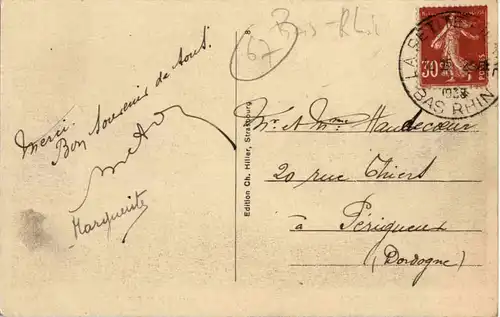 Merci.
Bon souvenir de tous.
Marguerite
67 Bas-Rhin
8
Edition Ch. Hiller, Strasbourg
30
POSTES
LA PETITE
BAS RHIN
Mr et Mme Haudecœur
20 rue Thiers
à Périgueux
(Dordogne)